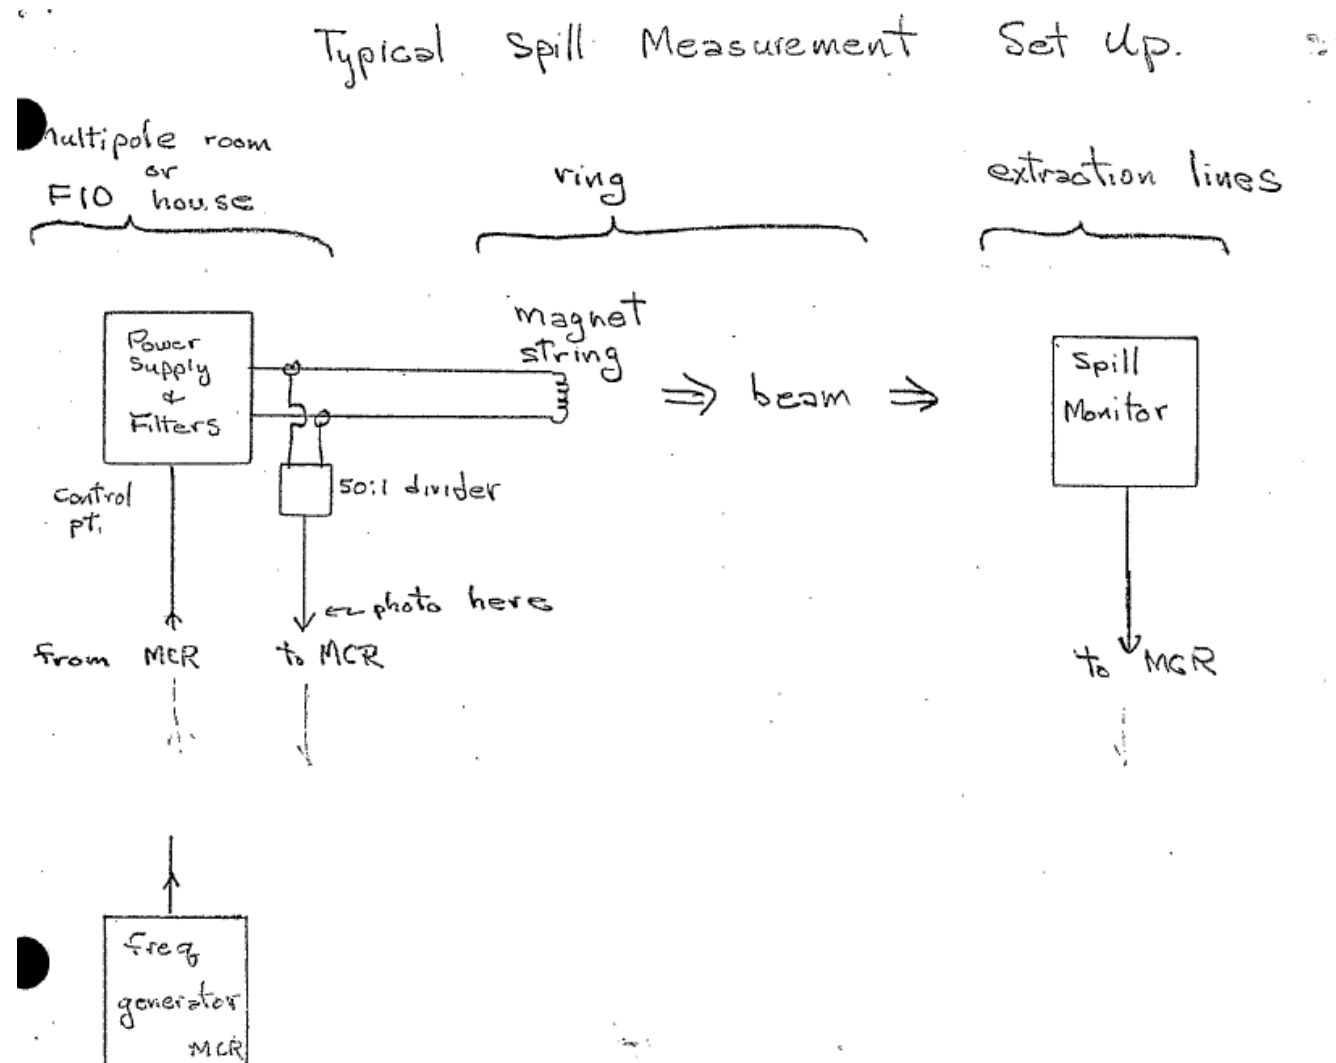 Typical Spill Measurement Set Up.
Multipole room
or
F10 house
ring
extraction lines
Power
Supply
&
Filters
magnet
string
⇒ beam ⇒
Spill
Monitor
50:1 divider
control
pt.
← photo here
from MCR
to MCR
to MCR
freq
generator
MCR